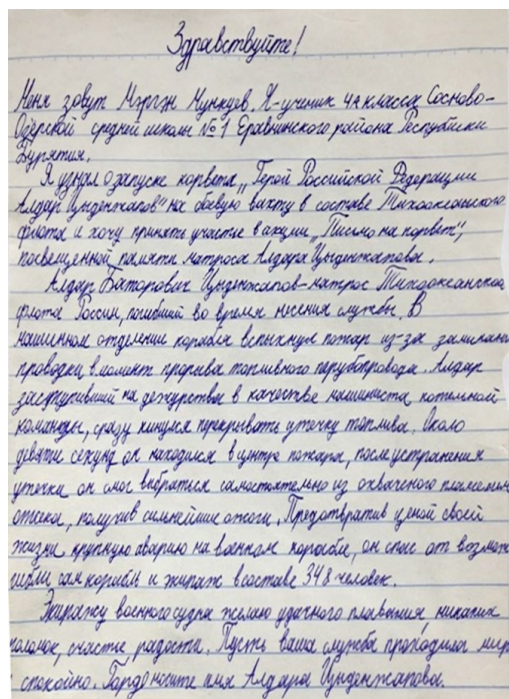 Здравствуйте!
Меня зовут Мэргэн Мункуев. Я-ученик 4А класса Сосново-
Озёрской средней школы №1 Еравнинского района Республики
Бурятия.
Я узнал о запуске корвета „Герой Российской Федерации
Алдар Цынденжапов" на боевую вахту в составе Тихоокеанского
флота и хочу принять участие в акции „Письмо на корвет",
посвещенной памяти матроса Алдара Цынденжапова.
Алдар Баторович Цынденжапов-матрос Тихоокеанского
флота России, погибший во время несения службы. В
машинном отделении корабля вспыхнул пожар из-за замыкания
проводки в момент прорыва топливного трубопровода. Алдар
заступивший на дежурство в качестве машиниста котельной
команды, сразу кинулся перекрывать утечку топлива. Около
девяти секунд он находился в центре пожара, после устранения
утечки он смог выбраться самостоятельно из охваченого пламенем
отсека, получив сильнейшие ожоги. Предотвратив ценой своей
жизни крупную аварию на военном корабле, он спас от возмож
гибели сам корабль и экипаж в составе 348 человек.
Экипажу военного судна желаю удачного плавания, никаких
поломок, счастье радости. Пусть ваша служба проходила мир
спокойно. Гордо носите имя Алдара Цынденжапова.